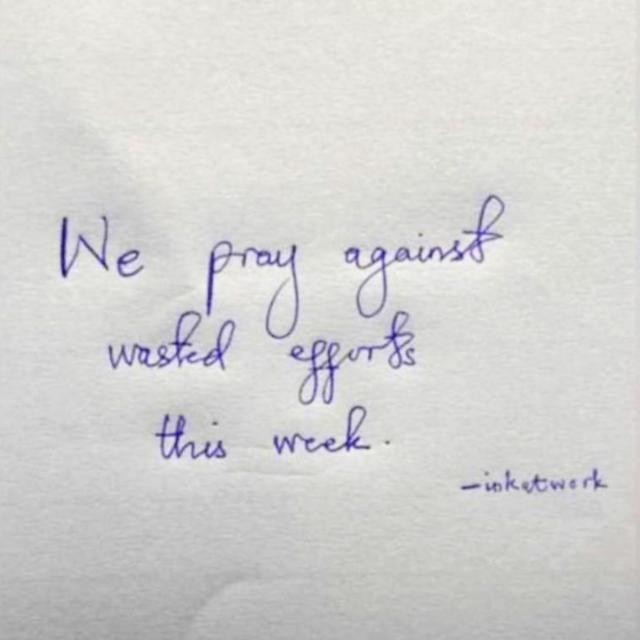 We pray against
wasted efforts
this week.
-inkatwork